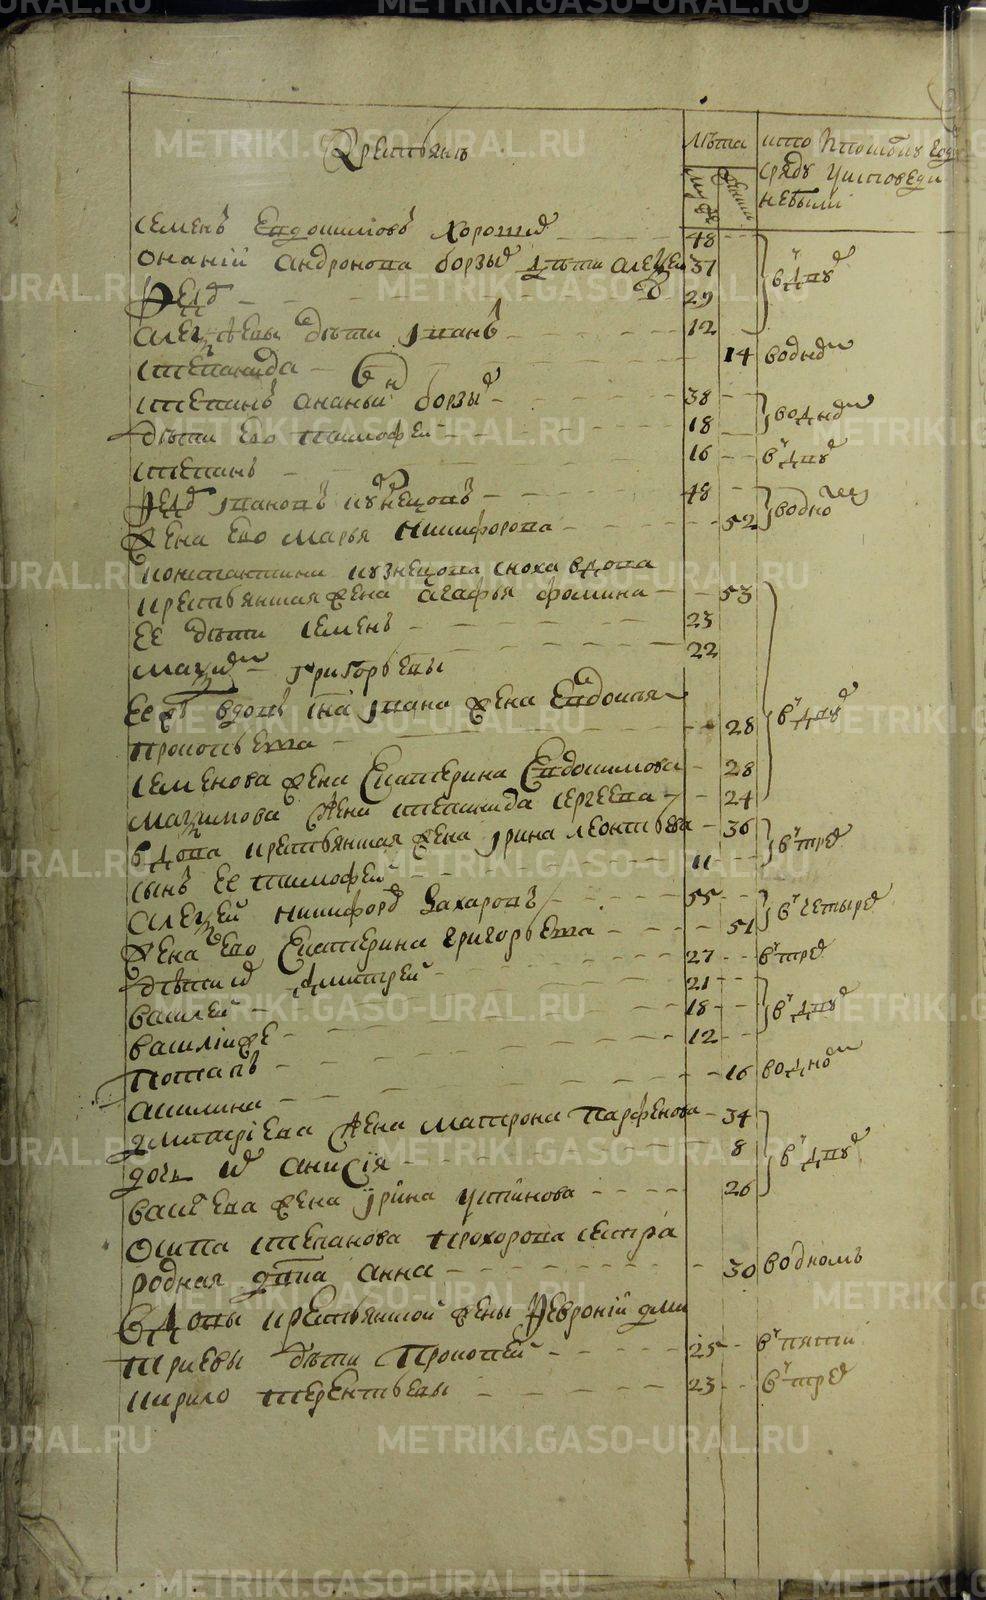 METRIKI.GASO-URAL.RU
Крестьянъ
Лѣта
муж
женск
кто
году
сряду у исповеди
небыли
семенъ Евдокимовъ хорошихъ 48
онаній андронова борзыхъ дѣти алексей 31
Федоръ 29
в двухъ
алексѣевы дѣти Иванъ 12
степанида 14 водныхъ
степанъ ананьинъ борзыхъ 38
дѣти ево тимофей 18
степанъ 16 в двухъ
Федоръ Ивановъ кузнецовъ 48
жена ево марья никифорова 52
константина кузнецова сноха вдова
крестьянская жена агафья фомина 53
ее дѣти семенъ 23
22
максимъ григорьевы
ее жъ вдовы сна Ивана жена Евдокья
прокопьева 28
в двухъ
семенова жена Екатерина Евдокимова 28
максимова жена степанида сергеева 24
вдова крестьянская жена Ирина леонтьева 36
в трехъ
сынъ ее тимофей 11
алексей никифоровъ Захаровъ 55
в четырехъ
жена ево Екатерина григорьева 51
дѣти ихъ дмитрей 27 в трехъ
василей 21
василій же 18
в двухъ
потапъ 12
акилина 16 водномъ
дмитріева жена матрона парфенова 34
дочь ихъ анисія 8
в двухъ
васильева жена Ирина устинова 26
осипа степанова прохорова сестра
родная девка анна 30 водномъ
вдовы крестьянской жены Февроніи дми
триевы дѣти прокопей 25 в пяти
кирило терентьевы 23 в трехъ